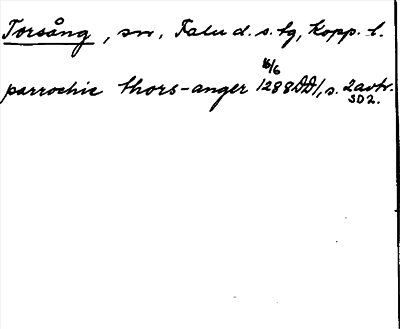 Torsång, sn, Falu d. s. tg, Kopp. l.
parrochie thors-anger 16/6 1288 DD1, s. 2 avtr.
SD 2.